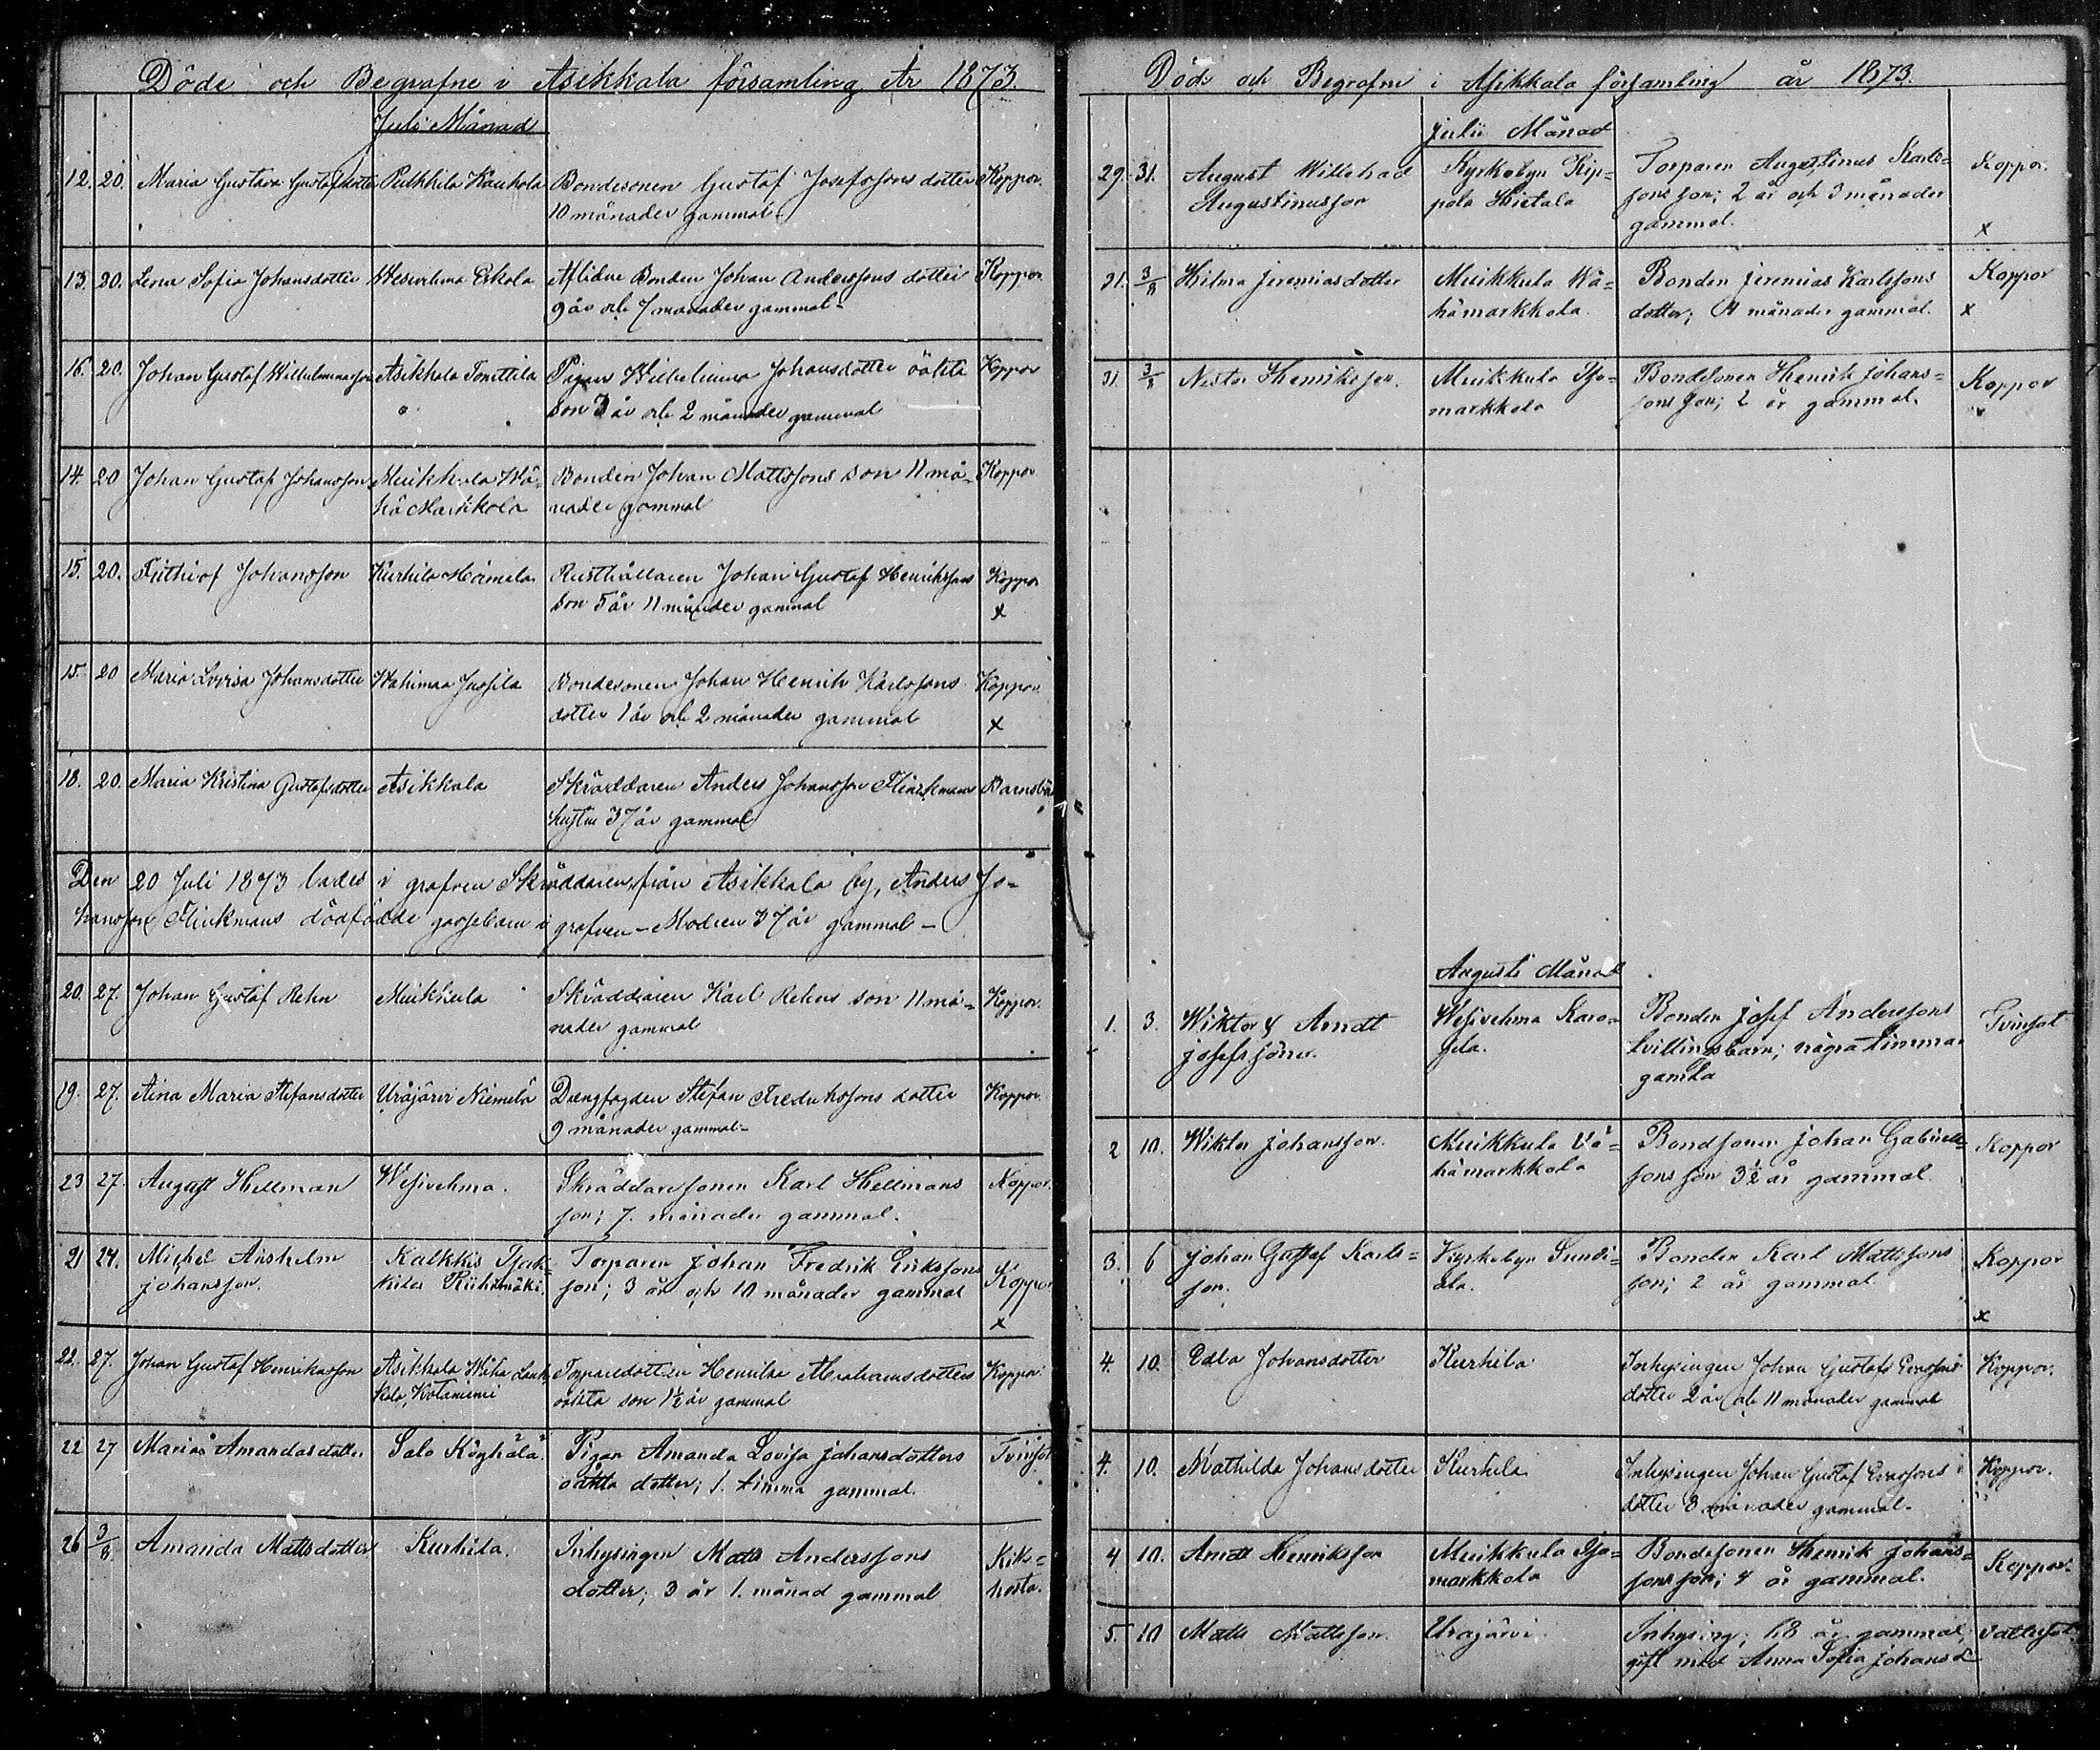 Döde och Begrafne i Asikkala församling År 1873.
Juli Månad
12. 20. Maria Gustava Gustafsdotter Pulkkila Kauhola Bondesonen Gustaf Josefssons dotter Koppor.
10 månader gammal
13. 20. Lena Sofia Johansdotter Wesivehma Erkola Aflidne Bonden Johan Anderssons dotter Koppor
9 år och 7 månader gammal
16. 20. Johan Gustaf Wilhelminasson Asikkala Tonttila Pigan Wilhelmina Johansdotter oäkta Koppor
son 3 år och 2 månader gammal
14. 20 Johan Gustaf Johansson Muikkula Wä-
hä Markkola
Bonden Johan Mattssons son 11 må-
nader gammal
Koppor
15. 20. Frithiof Johansson Kurhila Heimala Rusthållaren Johan Gustaf Henrikssons Koppor
son 5 år 11 månader gammal x
15. 20 Maria Lovisa Johansdotter Wahimaa Jussila Bondesonen Johan Henrik Karlssons Koppor.
dotter 1 år och 2 månader gammal x
18. 20. Maria Kristina Gustafsdotter Asikkala Skräddaren Anders Johansson Flinkmans Barnsbörd
hustru 37 år gammal
Den 20 Juli 1873 lades i grafven Skräddaren från Asikkala by, Anders Jo-
hansson Flinkmans dödfödde gossebarn i grafven - Modren 37 år gammal -
20. 27. Johan Gustaf Rehn Muikkula Skräddaren Karl Rehns son 11 må- Koppor.
nader gammal
19. 27. Aina Maria Stefansdotter Urajärvi Niemelä Drengfogden Stefan Fredrikssons dotter Koppor
9 månader gammal
23 27. August Hellman Wesivehma. Skräddaresonen Karl Hellmans Koppor.
son; 7. månader gammal.
21 27. Michel Anshelm
Johansson.
Kalkkis
Riihimäki.
Torparen Johan Fredrik Erikssons
son; 3 år och 10 månader gammal
Koppor
x
22. 27. Johan Gustaf Henrikasson Asikkala Wähä
Kotaniemi
Torparedottren Henrika Abrahamsdotters Koppor.
oäkta son 1½ år gammal
22 27 Maria Amandasdotter Salo Köyhälä Pigan Amanda Lovisa Johansdotters Tvinsot
oäkta dotter; 1. timma gammal.
26 3/8. Amanda Mattsdotter Kurhila. Inhysingen Matts Anderssons Kik-
dotter; 3 år 1. månad gammal hosta.
Döde och Begrafne i Asikkala församling år 1873.
Julii Månad
29. 31. August Willehad
Augustinusson
Kyrkobyn
Hietala
Torparen Augustinus Karls-
sons son; 2 år och 3 månader
gammal.
Koppor.
x
31. 3/8 Hilma Jeremiasdotter Muikkula Wä-
hämarkkola.
Bonden Jeremias Karlssons
dotter; månader gammal.
Koppor
x
31. 3/8 Nestor Henriksson. Muikkula Iso-
markkola
Bondesonen Henrik Johans-
sons son; 2 år gammal.
Koppor
x
Augusti Månad
1. 3. Wiktor & Arndt
Josefssöner.
Wesivehma
Bonden Josef Anderssons
tvillingsbarn; några timmar
gamla
Tvinsot
2 10. Wiktor Johansson. Muikkula Vä-
hämarkkola
Bondsonen Johan Gabriels-
sons son 3½ år gammal.
Koppor
3. 6 Johan Gustaf Karls-
son.
Kyrkobyn Sundi-
ala.
Bonden Karl Mattssons
son; 2 år gammal.
Koppor
x
4. 10. Edla Johansdotter Kurhila Inhysingen Johan Gustafs Erssons Koppor.
dotter 2 år och 11 månader gammal
4. 10. Mathilda Johansdotter Kurhila Inhysingen Johan Gustaf Erssons Koppor.
dotter 3 månader gammal.
4 10. Arndt Henriksson Muikkula Iso-
markkola
Bondesonen Henrik Johans-
sons son; 4 år gammal.
Koppor.
5. 10 Matts Mattsson. Urajärvi. Inhysing; 68 år gammal, vattusot
gift med Anna Sofia Johansd